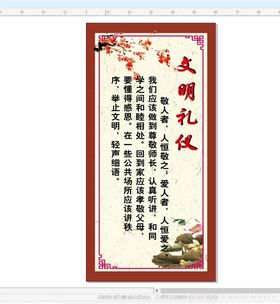 文明礼仪
敬人者，人恒敬之；爱人者，人恒爱之
我们应该做到尊敬师长，认真听讲，和同
学之间和睦相处。回到家应该孝敬父母，
要懂得感恩。在一些公共场所应该讲秩
序，举止文明、轻声细语。